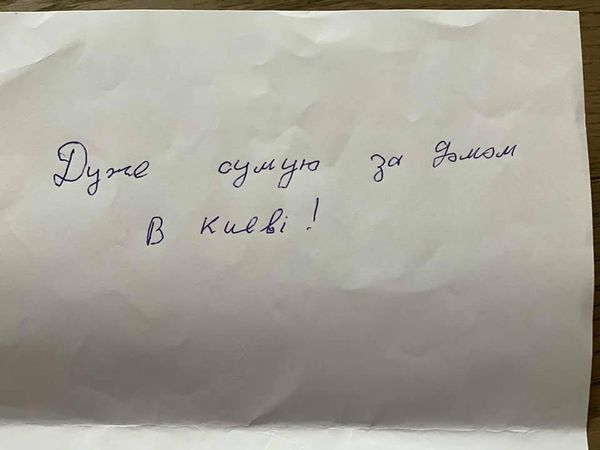 Дуже сумую за домом
в Києві!